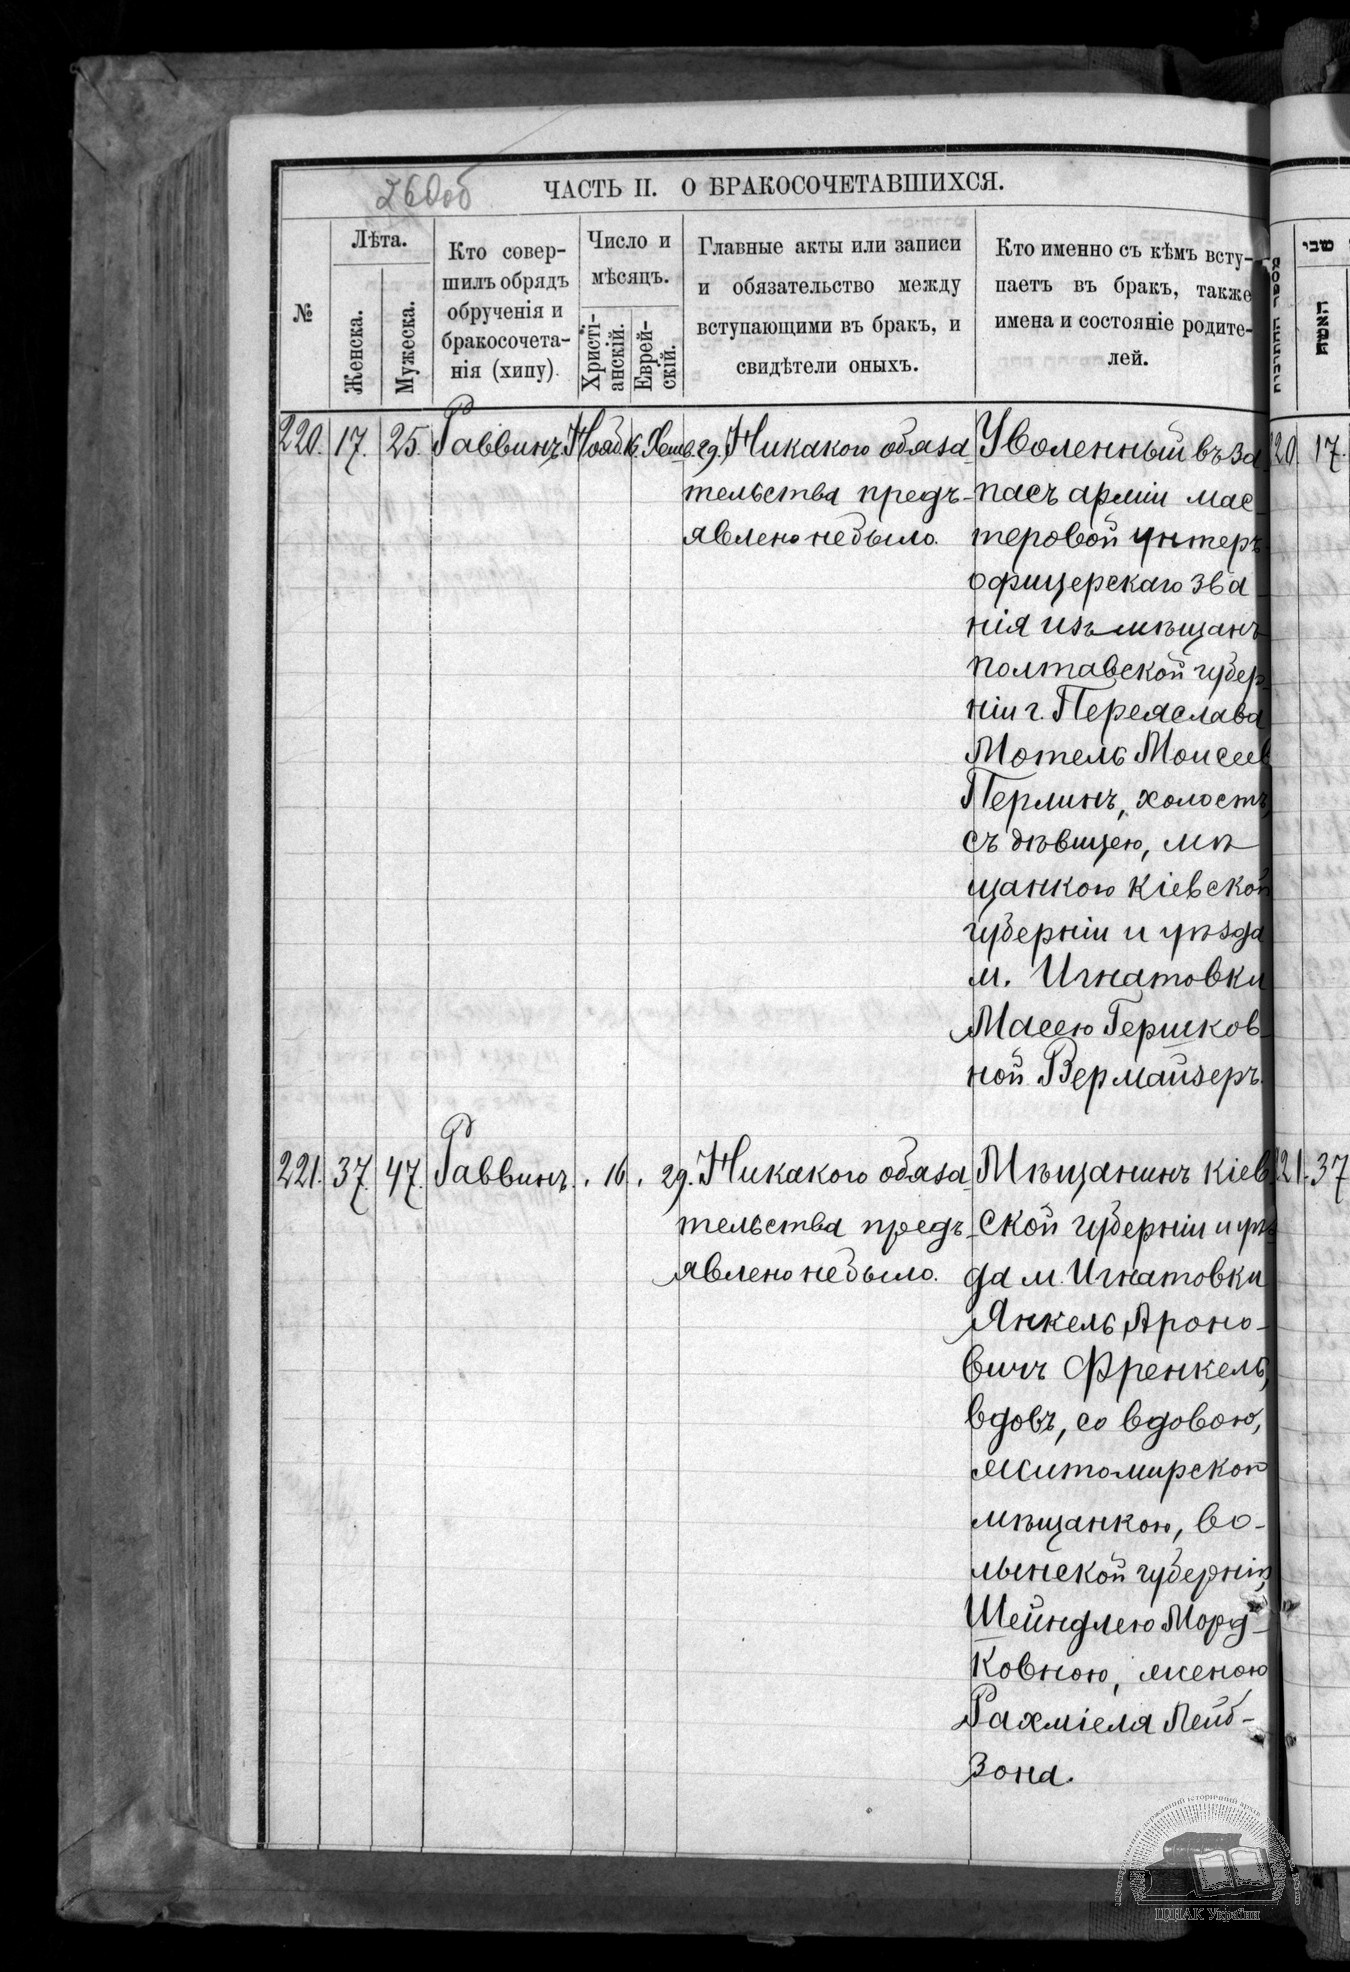 260об
ЧАСТЬ II. О БРАКОСОЧЕТАВШИХСЯ.
№
Лѣта.
Женска.
Мужеска.
Кто совер-
шилъ обрядъ
обрученія и
бракосочета-
нія (хипу).
Число и
мѣсяцъ.
Христі-
анскій.
Еврей-
скій.
Главные акты или записи
и обязательство между
вступающими въ бракъ, и
свидѣтели оныхъ.
Кто именно съ кѣмъ всту-
паетъ въ бракъ, также
имена и состояніе родите-
лей.
220. 17. 25. Раввинъ. Нояб. 16. Хешв. 29. Никакого обяза-
тельства предъ-
явлено не было.
Уволенный въ за
пасъ арміи мас
теровой унтеръ
офицерскаго зва
нія изъ мѣщанъ
полтавской губер-
ніи г. Переяслава
Мотель Моисеев
Перлинъ, холостъ,
съ дѣвицею, мѣ
щанкою кіевской
губерніи и уѣзда
м. Игнатовки
Масею Гершков-
ной Вермайзеръ.
221. 37. 47. Раввинъ. 16. 29. Никакого обяза-
тельства предъ-
явлено не было.
Мѣщанинъ кіев
ской губерніи и уѣз
да м. Игнатовки
Янкель Ароно-
вичъ Френкель,
вдовъ, со вдовою,
житомирскою
мѣщанкою, во-
лынской губерніи,
Шейндлею Морд-
ковною, женою
Рахміеля Лейб-
зона.
20. 17.
21. 37
שבי
האשה
ЦДІАК України